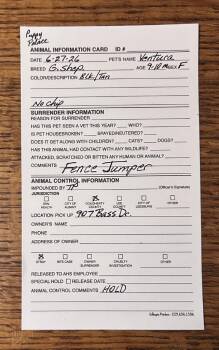 Puppy
Palace
ANIMAL INFORMATION CARD ID #
DATE 6-27-26 PET'S NAME Ventura
BREED G. Shep AGE 9-10 Mos SEX F
COLOR/DESCRIPTION Blk/Tan
No chip
SURRENDER INFORMATION
REASON FOR SURRENDER
HAS THIS PET SEEN A VET THIS YEAR? WHO?
IS PET HOUSEBROKEN? SPAYED/NEUTERED?
DOES IT GET ALONG WITH CHILDREN? CATS? DOGS?
HAS THIS ANIMAL HAD CONTACT WITH ANY WILDLIFE?
ATTACKED, SCRATCHED OR BITTEN ANY HUMAN OR ANIMAL?
COMMENTS Fence Jumper
ANIMAL CONTROL INFORMATION
IMPOUNDED BY TP (Officer's Signature)
JURISDICTION
CITY OF ALBANY
DOUGHERTY COUNTY
LEE COUNTY
CITY OF LEESBURG
OTHER
LOCATION PICK UP 907 Bass Dr.
OWNER'S NAME
PHONE
ADDRESS OF OWNER
STRAY
BITE CASE
OWNER SURRENDER
CRUELTY INVESTIGATION
OTHER
RELEASED TO AHS EMPLOYEE
SPECIAL HOLD RELEASE DATE
ANIMAL CONTROL COMMENTS HOLD